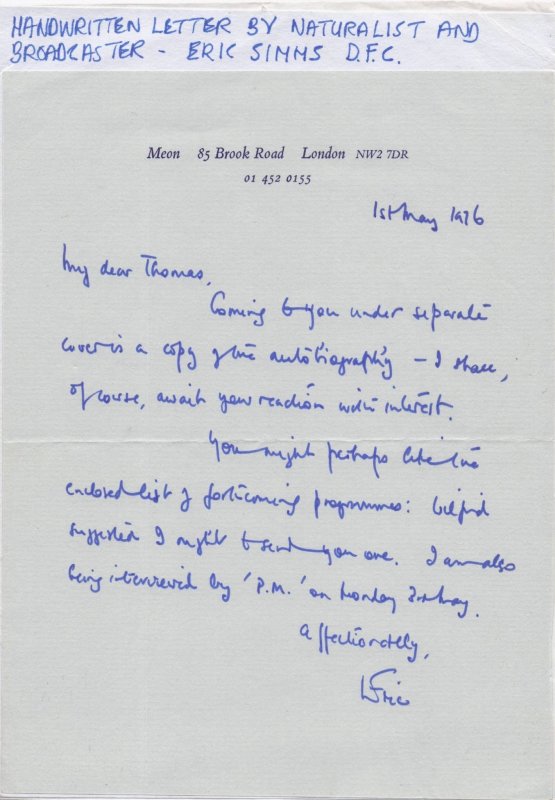 HANDWRITTEN LETTER BY NATURALIST AND
BROADCASTER - ERIC SIMMS D.F.C.
Meon 85 Brook Road London NW2 7DR
01 452 0155
1st May 1976
My dear Thomas,
Coming to you under separate
cover is a copy of the autobiography - I shall,
of course, await your reaction with interest.
You might perhaps like the
enclosed list of forthcoming programmes:
suggested I ought to send you one. I am also
being interviewed by 'P.M.' on Monday 3rd May.
Affectionately,
Eric